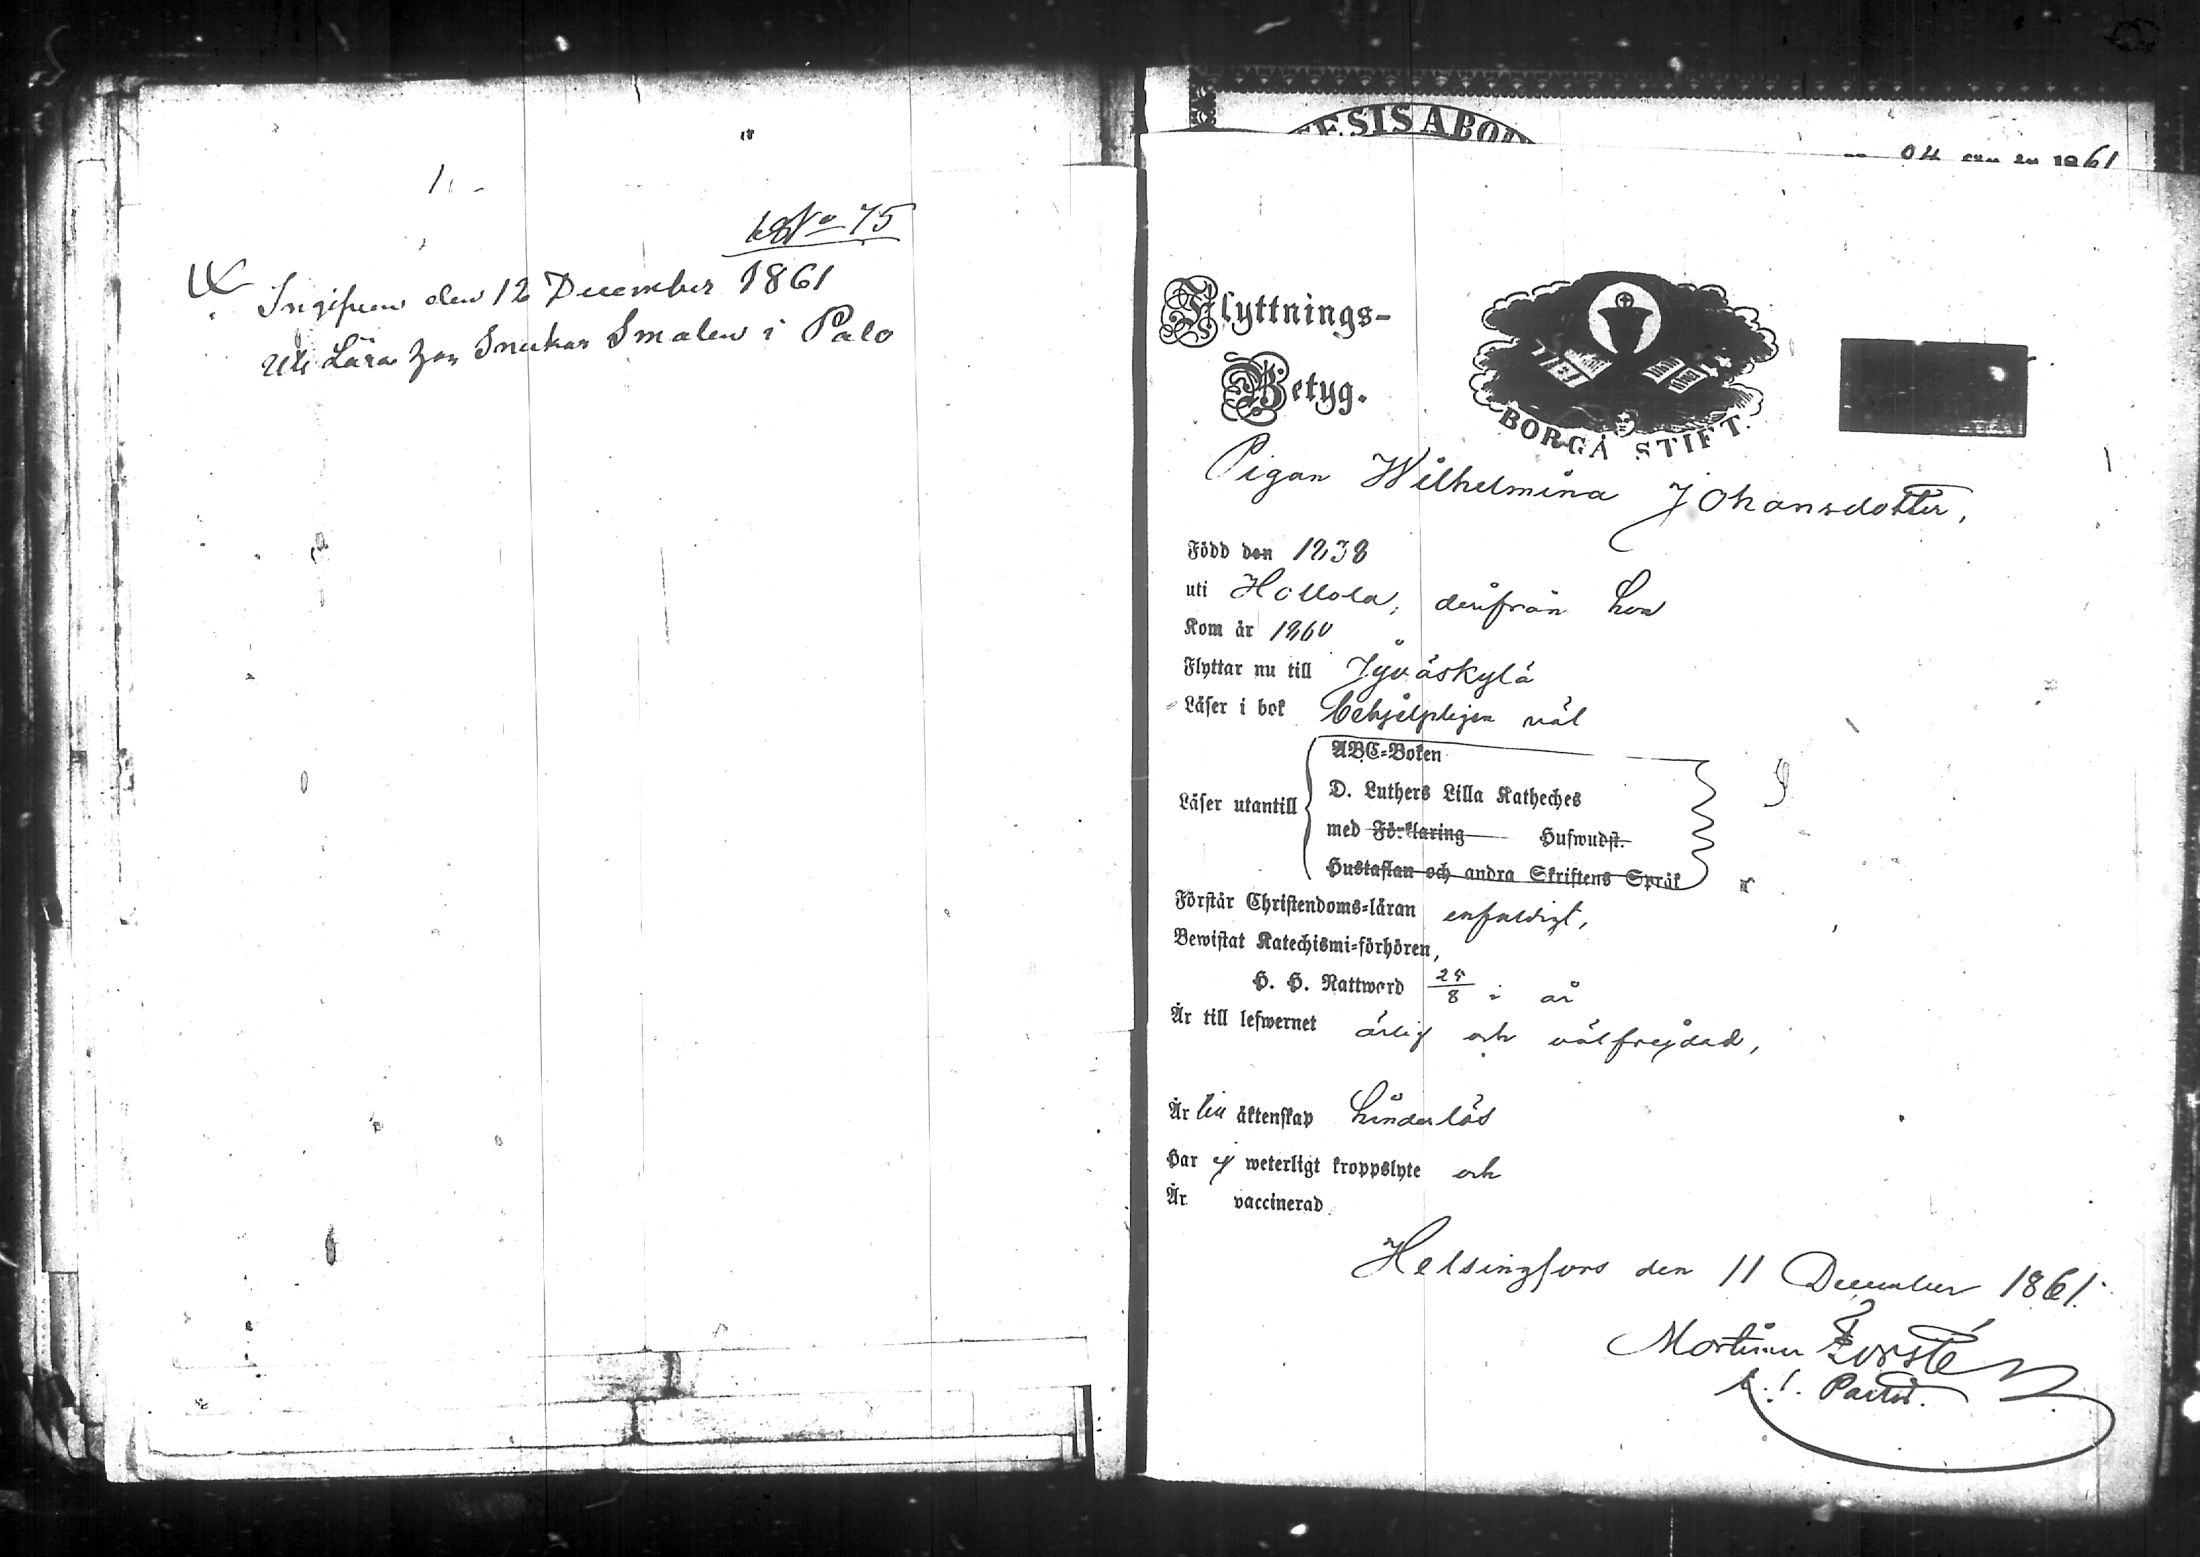 No 75
Ingifven den 12 December 1861
Uti Lära hos Snickar Smalen i Palo
ESIS ABO
1861
Flyttnings-
Betyg.
BORGÅ STIFT.
Pigan Wilhelmina Johansdotter,
Född den 1838
uti Hollola, derifrån hon
Kom år 1860
Flyttar nu till Jyväskylä
Läser i bok behjelpligen väl
ABC-Boken
D. Luthers Lilla Katheches
Läser utantill
med Förklaring Hufwudst.
Hustaflan och andra Skriftens Språk
Förstår Christendoms-läran enfaldigt,
Bewistat Katechismi-förhören,
H. H. Nattward 25/8 i år
Är till lefwernet ärlig och välfrejdad,
Är till äktenskap hinderlös
Har ej weterligt kroppslyte och
Är vaccinerad
Helsingfors den 11 December 1861.
Mortimer Forstén
Pastor.